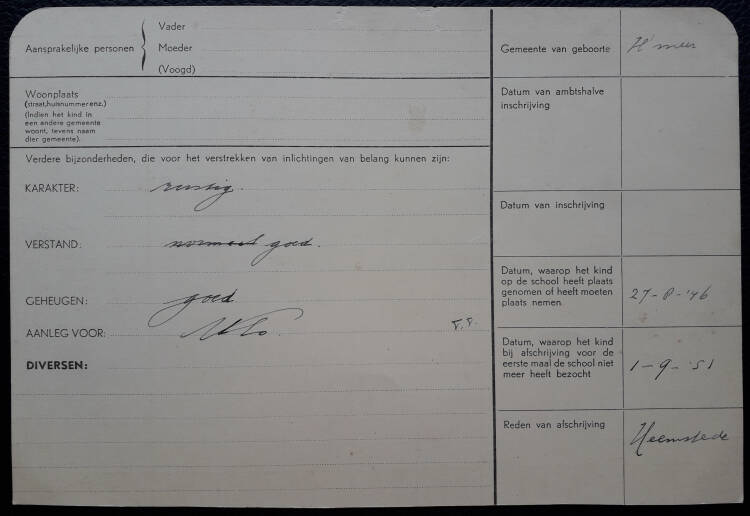 Aansprakelijke personen
Vader
Moeder
(Voogd)
Woonplaats
(straat, huisnummer enz.)
(Indien het kind in
een andere gemeente
woont, tevens naam
dier gemeente).
Verdere bijzonderheden, die voor het verstrekken van inlichtingen van belang kunnen zijn:
KARAKTER: rustig.
VERSTAND: normaal goed.
GEHEUGEN: goed
AANLEG VOOR:
DIVERSEN:
Gemeente van geboorte H'meer
Datum van ambtshalve
inschrijving
Datum van inschrijving
Datum, waarop het kind
op de school heeft plaats
genomen of heeft moeten
plaats nemen.
27-8-'46
Datum, waarop het kind
bij afschrijving voor de
eerste maal de school niet
meer heeft bezocht
1-9-'51
Reden van afschrijving
Heemstede